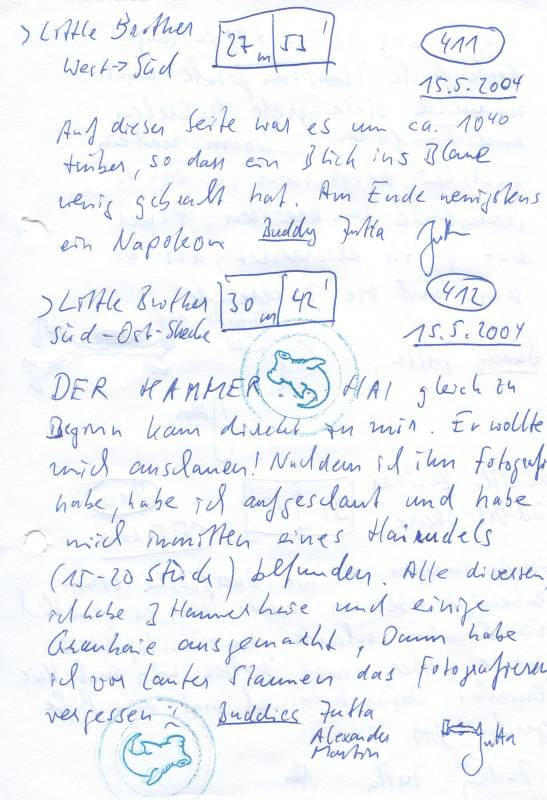 > Little Brother 27 m 53' 411
West -> Süd 15.5.2004
Auf dieser Seite war es um ca. 10⁴⁰
trüber, so dass ein Blick ins Blaue
wenig gebracht hat. Am Ende wenigstens
ein Napoleon Buddy Jutta Jutta
> Little Brother 30 m 42' 412
Süd-Ost-Strecke 15.5.2004
DER HAMMER. HAI gleich zu
Beginn kam direkt zu mir. Er wollte
mich anschauen! Nachdem ich ihn fotografi
habe, habe ich aufgeschaut und habe
mich inmitten eines Hairudels
(15-20 Stück) befunden. Alle diversen,
ich habe 3 Hammerhaie und einige
Grauhaie ausgemacht, Dann habe
ich vor lauter Staunen das Fotografieren
vergessen! Buddies Jutta Jutta
Alexander
Martin